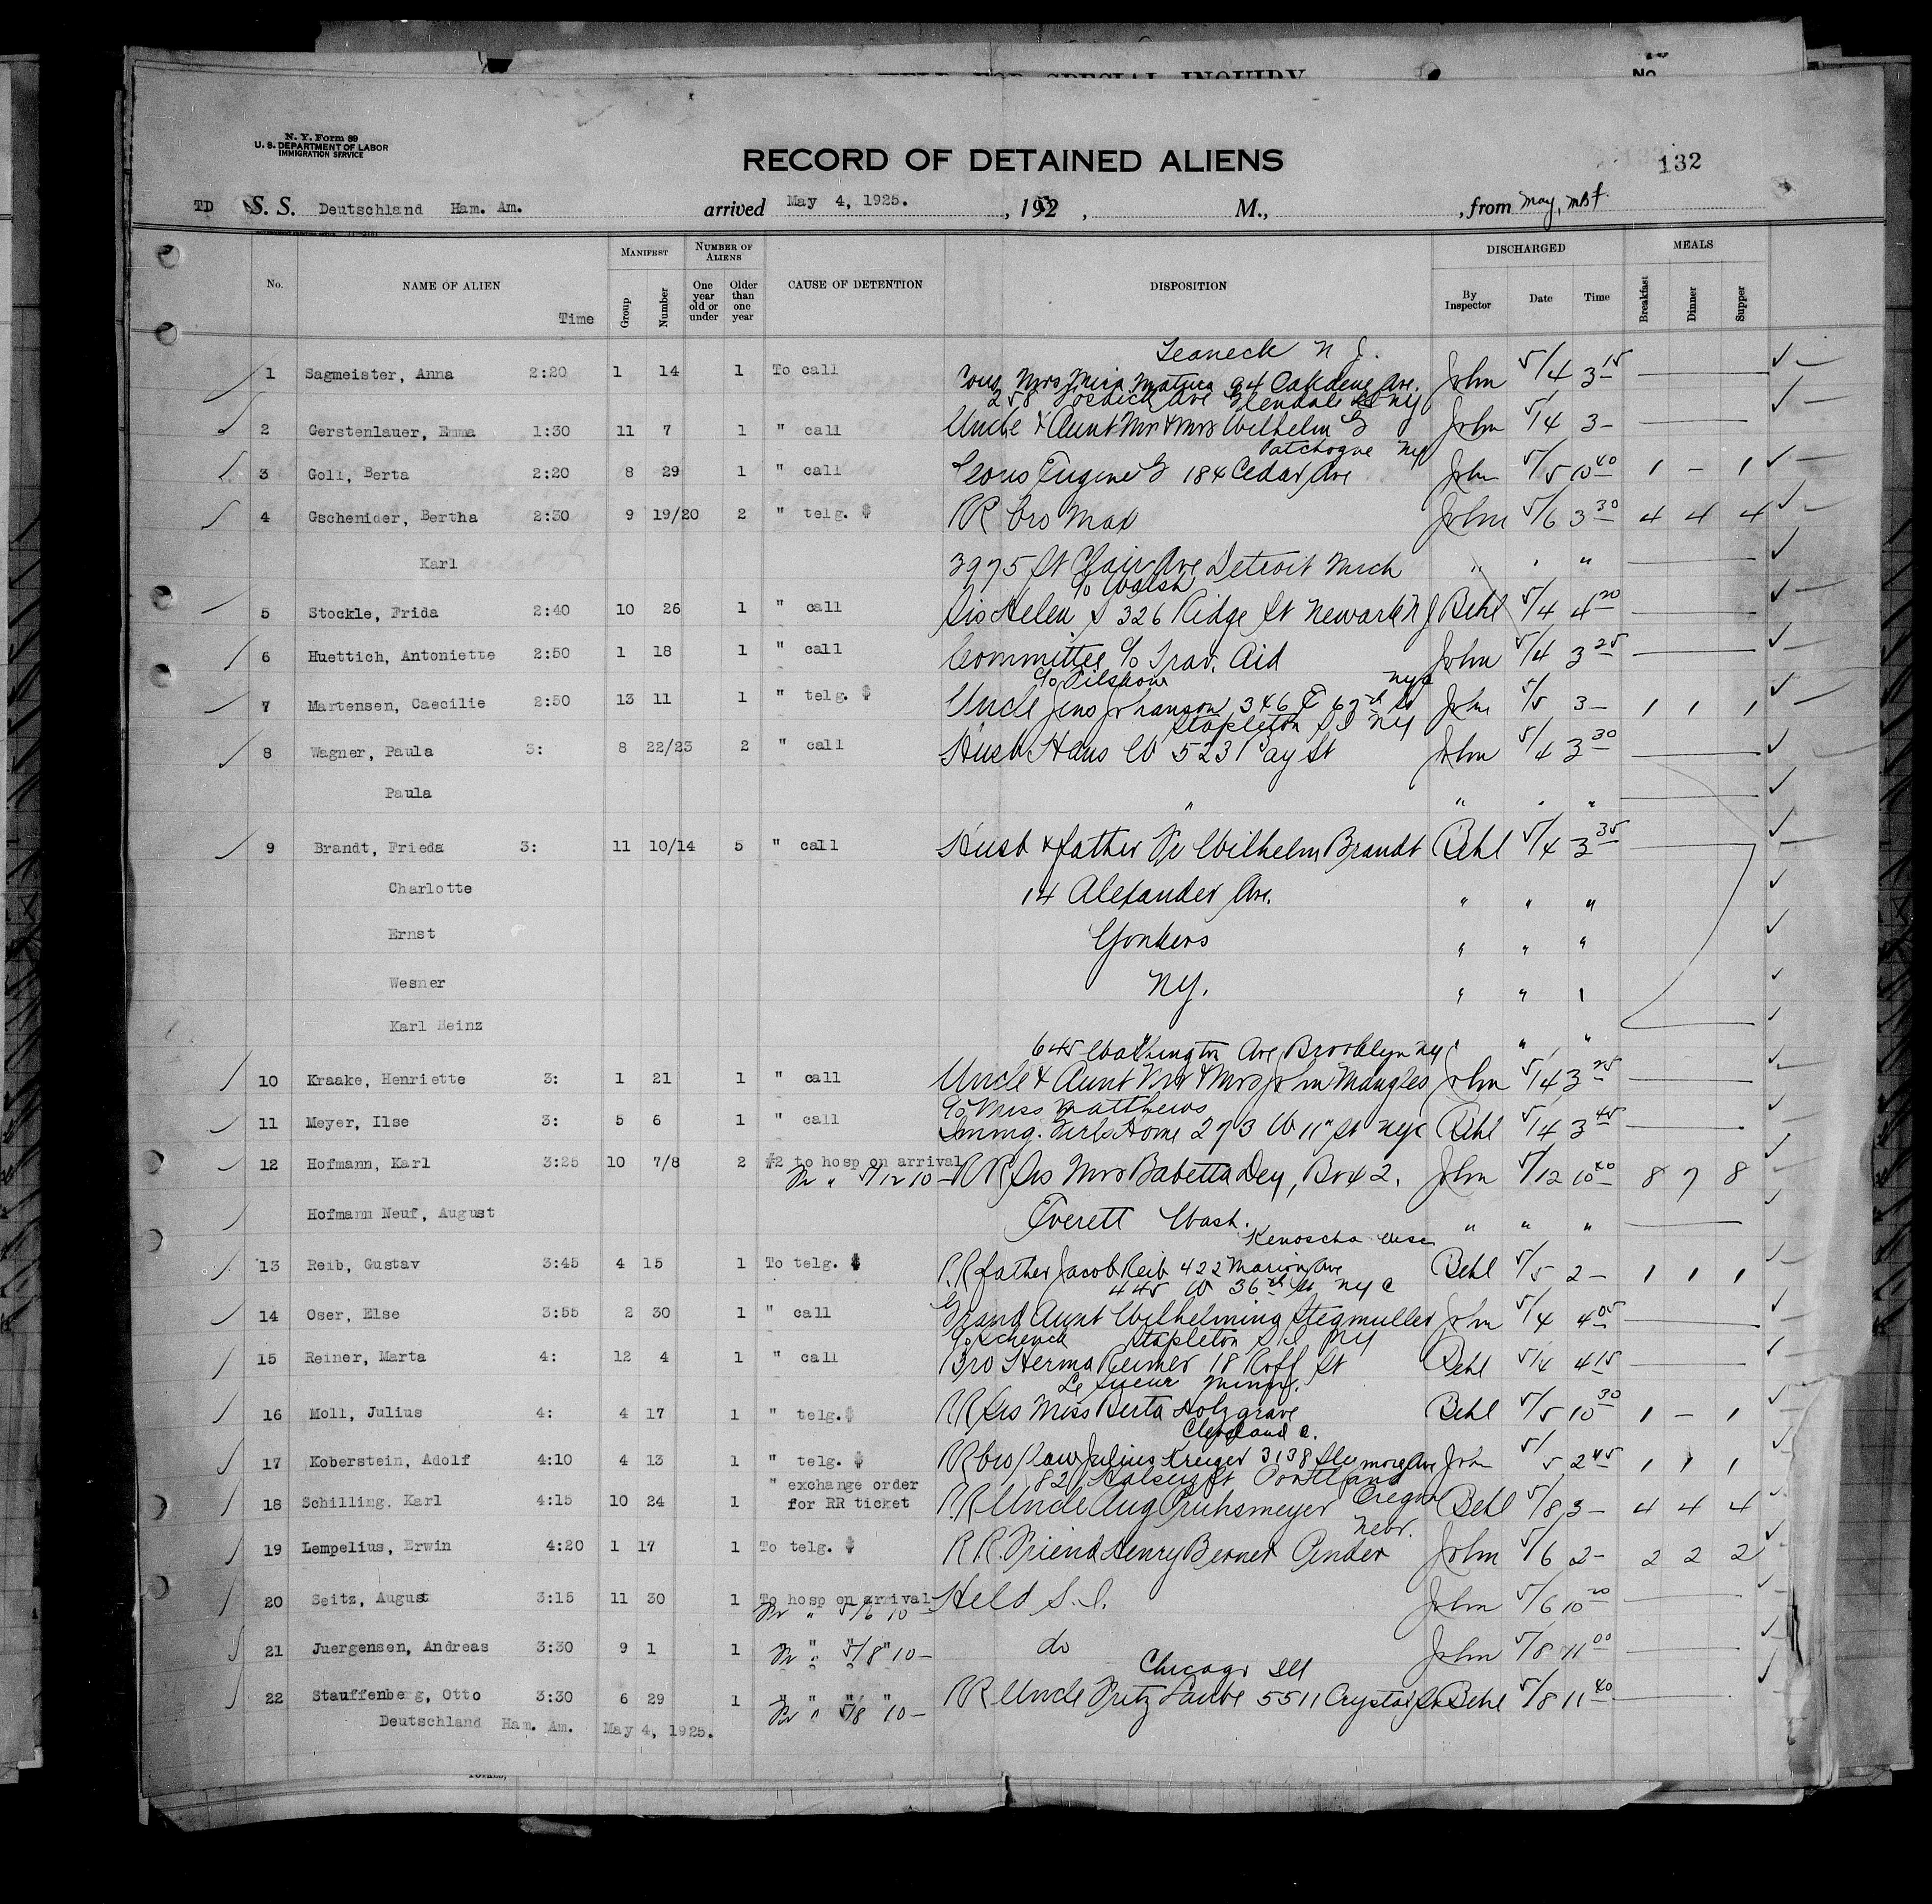 HELD FOR SPECIAL INQUIRY
No.
N. Y. Form 89
U. S. DEPARTMENT OF LABOR
IMMIGRATION SERVICE
RECORD OF DETAINED ALIENS
132
TD S. S. Deutschland Ham. Am. arrived May 4, 1925. , 192 , M., , from
No. NAME OF ALIEN Time MANIFEST Group Number NUMBER OF ALIENS One year old or under Older than one year CAUSE OF DETENTION DISPOSITION DISCHARGED By Inspector Date Time MEALS Breakfast Dinner Supper
Teaneck N J.
1 Sagmeister, Anna 2:20 1 14 1 To call Cous Mrs 94 Oakdene Ave. John 5/4 3 15
258 Fosdick Ave Glendale NY
2 Gerstenlauer, Emma 1:30 11 7 1 " call Uncle & Aunt Mr & Mrs Wilhelm G John 5/4 3-
Patchogue NY
3 Goll, Berta 2:20 8 29 1 " call Cous Eugene G 184 Cedar Ave John 5/5 10 40 1 - 1
4 Gschenider, Bertha 2:30 9 19/20 2 " telg. $ RR bro Max John 5/6 3 30 4 4 4
Karl 3975 St Clair Ave Detroit Mich " " "
c/o Walsh
5 Stockle, Frida 2:40 10 26 1 " call Sis Helen S 326 Ridge St Newark N J Behl 5/4 4 20
6 Huettich, Antoniette 2:50 1 18 1 " call Committee c/o Trav. Aid John 5/4 3 25
c/o NYC
7 Martensen, Caecilie 2:50 13 11 1 " telg. $ Uncle Jens Johanson 346 E 67th St John 5/5 3- 1 1 1
Stapleton S I NY
8 Wagner, Paula 3: 8 22/23 2 " call Husb Hans W 523 Bay St John 5/4 3 30
Paula " " " "
9 Brandt, Frieda 3: 11 10/14 5 " call Husb & father Fr Wilhelm Brandt Behl 5/4 3 35
Charlotte 14 Alexander Ave. " " "
Ernst Yonkers " " "
Wesner NY. " " "
Karl Heinz " " "
645 Washington Ave Brooklyn NY
10 Kraake, Henriette 3: 1 21 1 " call Uncle & Aunt Mr & Mrs John Mangles John 5/4 3 25
c/o Miss Matthews
11 Meyer, Ilse 3: 5 6 1 " call Immig. Girls Home 273 W 11" St NYC Behl 5/4 3 45
12 Hofmann, Karl 3:25 10 7/8 2 #2 to hosp on arrival
Fr " 5/12 10- RR Sis Mrs Babetta Dey, Box 2. John 5/12 10 40 8 7 8
Hofmann Neuf, August Everett Wash. " " "
Kenoscha Wisc
13 Reib, Gustav 3:45 4 15 1 To telg. $ RR father Jacob Reib 422 Marion Ave Behl 5/5 2- 1 1 1
445 W 36th St NYC
14 Oser, Else 3:55 2 30 1 " call Grand Aunt Wilhelming Stegmuller John 5/4 4 05
c/o Schenck Stapleton S I NY
15 Reiner, Marta 4: 12 4 1 " call Bro Herma Reimer 18 Roff St Behl 5/4 4 15
Le Sueur Minn.
16 Moll, Julius 4: 4 17 1 " telg. $ RR Sis Miss Berta Holzgrave Behl 5/5 10 30 1 - 1
Cleveland O.
17 Koberstein, Adolf 4:10 4 13 1 " telg. $ RR bro/law Julius Kreiger 3138 Ave John 5/5 2 45 1 1 1
" exchange order 821 Halsey St Portland
18 Schilling, Karl 4:15 10 24 1 for RR ticket RR Uncle Aug Oregon Behl 5/8 3- 4 4 4
Nebr.
19 Lempelius, Erwin 4:20 1 17 1 To telg. $ RR Friend Henry Berner Pender John 5/6 2- 2 2 2
20 Seitz, August 3:15 11 30 1 To hosp on arrival Held S. I. John 5/6 10 20
Fr " 5/6 10-
21 Juergensen, Andreas 3:30 9 1 1 " " " "
Fr " 5/8 10- do John 5/8 11 00
Chicago Ill
22 Stauffenberg, Otto 3:30 6 29 1 " " " " RR Uncle Fritz Laube 5511 Crystal St Behl 5/8 11 40
Fr " 5/8 10-
Deutschland Ham. Am. May 4, 1925.
TOTALS,